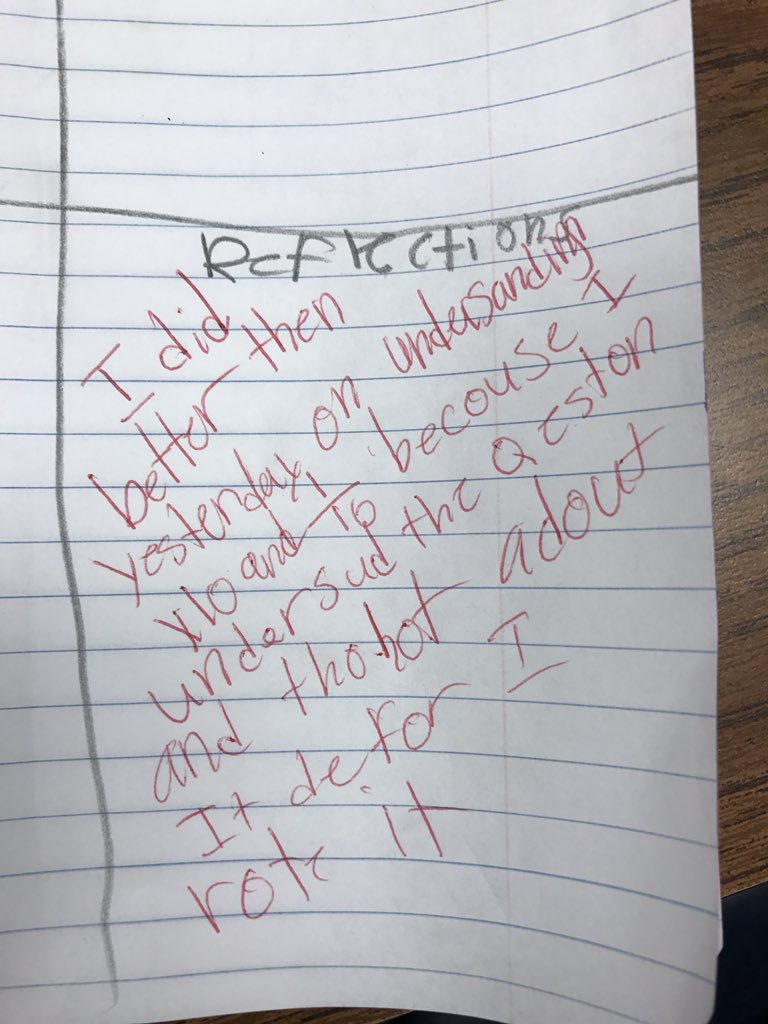 Reflections
I did
better then
yesterday, on undersanding
x10 and 1/10 becouse I
undersud the qeston
and thohot adout
It defor I
rote it